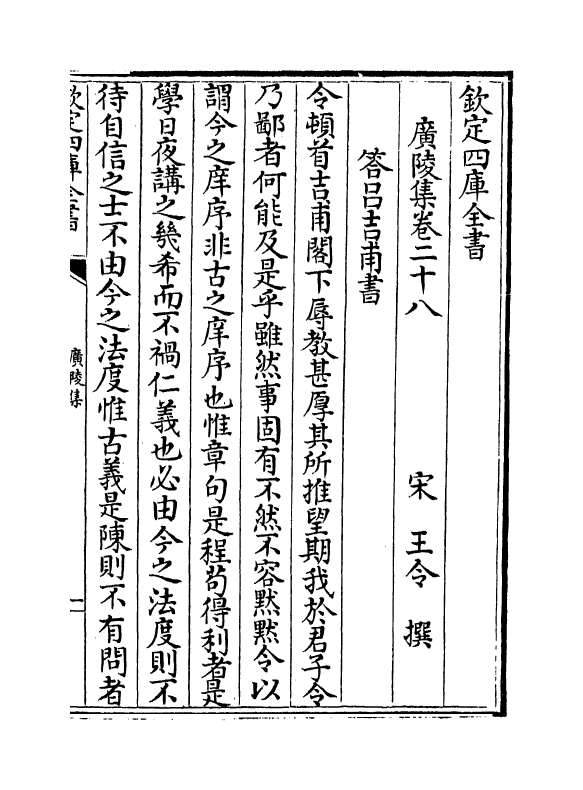 欽定四庫全書
廣陵集卷二十八
宋 王令 撰
答吕吉甫書
令頓首吉甫閣下辱教甚厚其所推望期我於君子令
乃鄙者何能及是乎雖然事固有不然不容黙黙令以
謂今之庠序非古之庠序也惟章句是程苟得利者是
學日夜講之幾希而不禍仁義也必由今之法度則不
待自信之士不由今之法度惟古義是陳則不有問者
欽定四庫全書
廣陵集